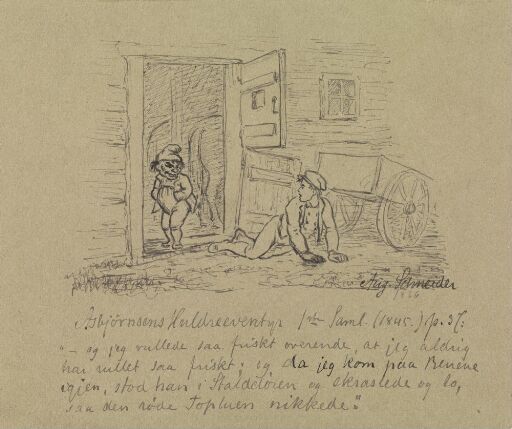 Aug. Schneider
Asbjørnsens Huldreeventyr 1ste Saml. (1845.) p. 37:
"– og jeg rullede saa friskt overende, at jeg aldrig
har rullet saa friskt; og da jeg kom paa Benene
igjen, stod han i Stalddøren og skraslede og lo,
saa den røde Topluen nikkede."